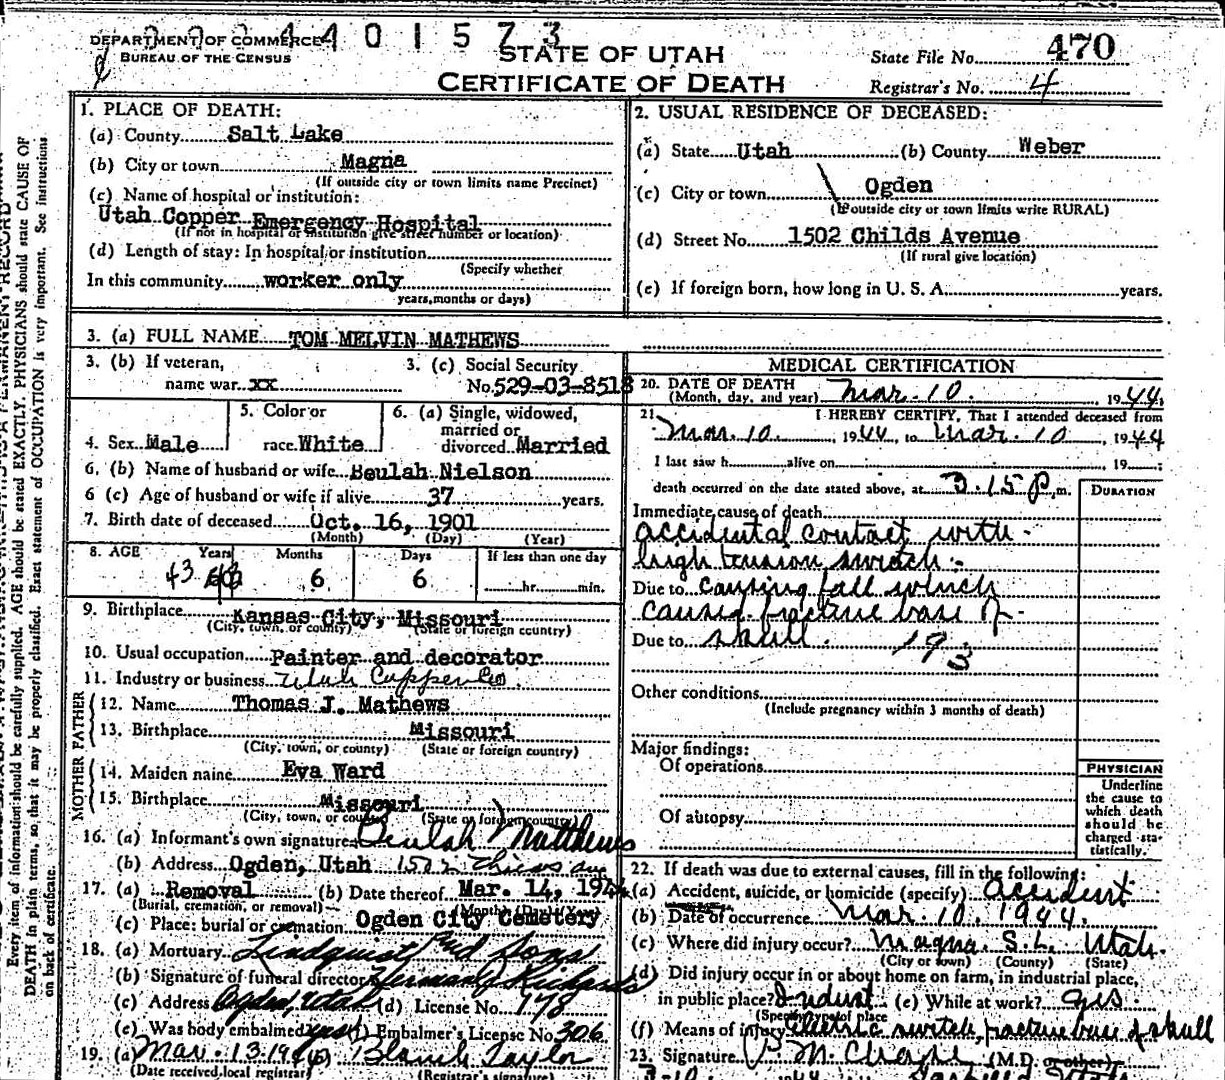 DEPARTMENT OF COMMERCE
BUREAU OF THE CENSUS
4401573
STATE OF UTAH
CERTIFICATE OF DEATH
State File No. 470
Registrar's No. 4
1. PLACE OF DEATH:
(a) County Salt Lake
(b) City or town Magna
(If outside city or town limits name Precinct)
(c) Name of hospital or institution:
Utah Copper Emergency Hospital
(If not in hospital or institution give street number or location)
(d) Length of stay: In hospital or institution
(Specify whether
In this community worker only
years, months or days)
2. USUAL RESIDENCE OF DECEASED:
(a) State Utah (b) County Weber
(c) City or town Ogden
(If outside city or town limits write RURAL)
(d) Street No. 1502 Childs Avenue
(If rural give location)
(e) If foreign born, how long in U. S. A. years.
3. (a) FULL NAME TOM MELVIN MATHEWS
3. (b) If veteran,
name war xx
3. (c) Social Security
No. 529-03-8518
4. Sex Male
5. Color or
race White
6. (a) Single, widowed,
married or
divorced Married
6. (b) Name of husband or wife Beulah Nielson
6 (c) Age of husband or wife if alive 37 years.
7. Birth date of deceased Oct. 16, 1901
(Month) (Day) (Year)
8. AGE Years Months Days If less than one day
43 6 6 hr. min.
9. Birthplace Kansas City, Missouri
(City, town, or county) (State or foreign country)
10. Usual occupation Painter and decorator
11. Industry or business Utah Copper Co.
FATHER
12. Name Thomas J. Mathews
13. Birthplace Missouri
(City, town, or county) (State or foreign country)
MOTHER
14. Maiden name Eva Ward
15. Birthplace Missouri
(City, town, or county) (State or foreign country)
16. (a) Informant's own signature Beulah Matthews
(b) Address Ogden, Utah 1502 Childs ave
17. (a) Removal (b) Date thereof Mar. 14, 1944
(Burial, cremation, or removal) (Month) (Day) (Year)
(c) Place: burial or cremation Ogden City Cemetery
18. (a) Mortuary Lindquist And Sons
(b) Signature of funeral director Herman J Richards
(c) Address Ogden, Utah (d) License No. 178
(e) Was body embalmed yes (f) Embalmer's License No 306
19. (a) Mar. 13. 1944 (b) Blanch Taylor
(Date received local registrar) (Registrar's signature)
MEDICAL CERTIFICATION
20. DATE OF DEATH
(Month, day, and year) Mar. 10. 1944
21. I HEREBY CERTIFY, That I attended deceased from
Mar. 10, 1944, to Mar. 10, 1944
I last saw h alive on , 19 ;
death occurred on the date stated above, at 3.15 P.m.
DURATION
Immediate cause of death
accidental contact with
high tension switch
Due to causing fall which
caused fracture base of
Due to skull. 193
Other conditions
(Include pregnancy within 3 months of death)
Major findings:
Of operations
Of autopsy
PHYSICIAN
Underline
the cause to
which death
should be
charged sta-
tistically.
22. If death was due to external causes, fill in the following:
(a) Accident, suicide, or homicide (specify) accident
(b) Date of occurrence Mar. 10. 1944.
(c) Where did injury occur? Magna. S.L. Utah.
(City or town) (County) (State)
(d) Did injury occur in or about home on farm, in industrial place,
in public place? Indust. (e) While at work? yes.
(Specify type of place
(f) Means of injury electric switch, fracture base of skull
23. Signature (M.D. or other)
Every item of information should be carefully supplied. AGE should be stated EXACTLY. PHYSICIANS should state CAUSE OF
DEATH in plain terms, so that it may be properly classified. Exact statement of OCCUPATION is very important. See instructions
on back of certificate.